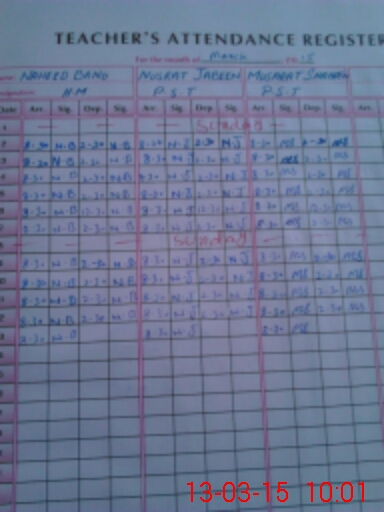 TEACHER'S ATTENDANCE REGISTER
For the month of March
NAHEED BANO NUSRAT JABEEN MUSARAT
H M P.S.T P.S.T
Date Arr. Sig. Dep. Sig. Arr. Sig. Dep. Sig. Arr. Sig. Dep. Sig. Arr.
Sunday
8-30 N-B 2-30 N-B 8-30 N-J 2-30 N-J 8-30 MS 2-30 MS
8-30 N-B 2-30 N-B 8-30 N-J 2-30 N-J 8-30 MS 2-30 MS
8-30 N-B 2-30 N-B 8-30 N-J 2-30 N-J 8-30 MS 2-30 MS
8-30 N-B 2-30 N-B 8-30 N-J 2-30 N-J 8-30 MS 2-30 MS
8-30 N-B 12-30 N-B 8-30 N-J 12-30 N-J 8-30 MS 12-30 MS
8-30 N-B 2-30 N-B 8-30 N-J 2-30 N-J 8-30 MS 2-30 MS
Sunday
8-30 N-B 2-30 N-B 8-30 N-J 2-30 N-J 8-30 MS 2-30 MS
8-30 N-B 2-30 N-B 8-30 N-J 2-30 N-J 8-30 MS 2-30 MS
8-30 N-B 2-30 N-B 8-30 N-J 2-30 N-J 8-30 MS 2-30 MS
8-30 N-B 2-30 N-B 8-30 N-J 2-30 N-J 8-30 MS 2-30 MS
8-30 N-B 8-30 N-J 8-30 MS
13-03-15 10:01